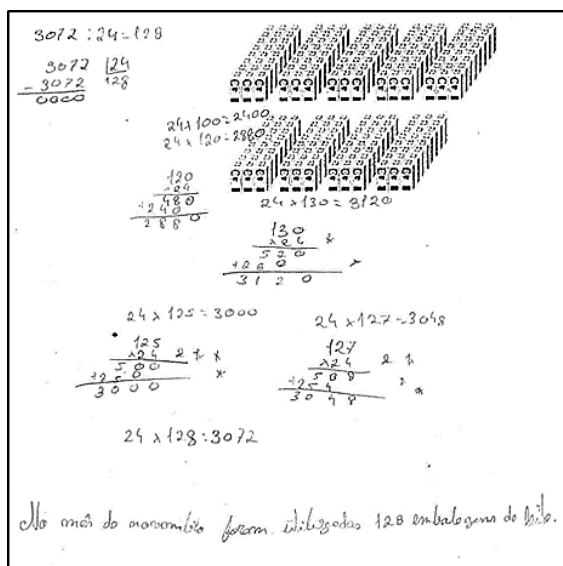 3072 : 24 = 128
3072 | 24
- 3072 128
0000
24 x 100 = 2400
24 x 120 = 2880
120
x 24
480
+ 240
2880
24 x 130 = 3120
130
x 24 *
520
+ 260 *
3120
24 x 125 = 3000
125
x 24 2 * *
500
+ 250 *
3000
24 x 127 = 3048
127
x 24 2 *
508
+ 254 *
3048
24 x 128 = 3072
No mês do novembro foram utilizadas 128 embalagens do leite.